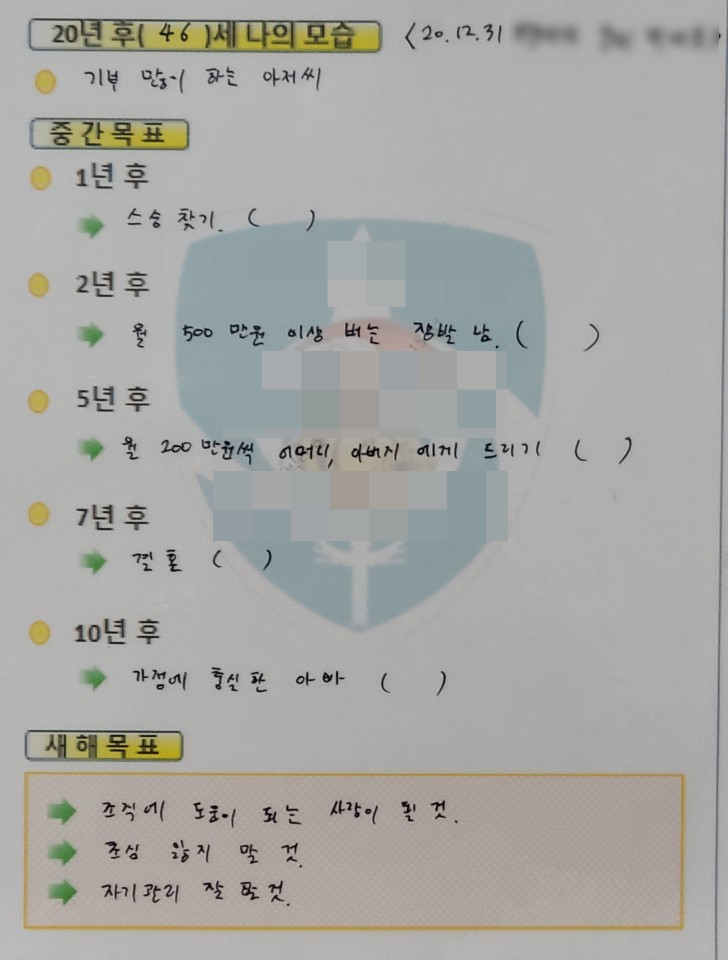 20년 후( 46 )세 나의 모습 <20.12.31
기부 많이 하는 아저씨
중간목표
1년 후
스승 찾기. ( )
2년 후
월 500 만원 이상 버는 장발 남. ( )
5년 후
월 200 만원씩 어머니, 아버지 에게 드리기 ( )
7년 후
결혼 ( )
10년 후
가정에 충실한 아빠 ( )
새해목표
조직에 도움이 되는 사람이 될 것.
초심 잃지 말 것.
자기관리 잘 할 것.